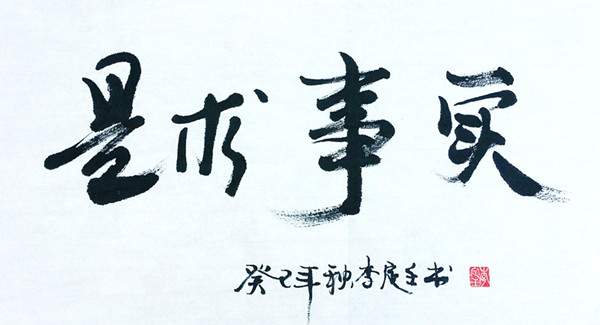 实事求是
癸巳年秋李庭书